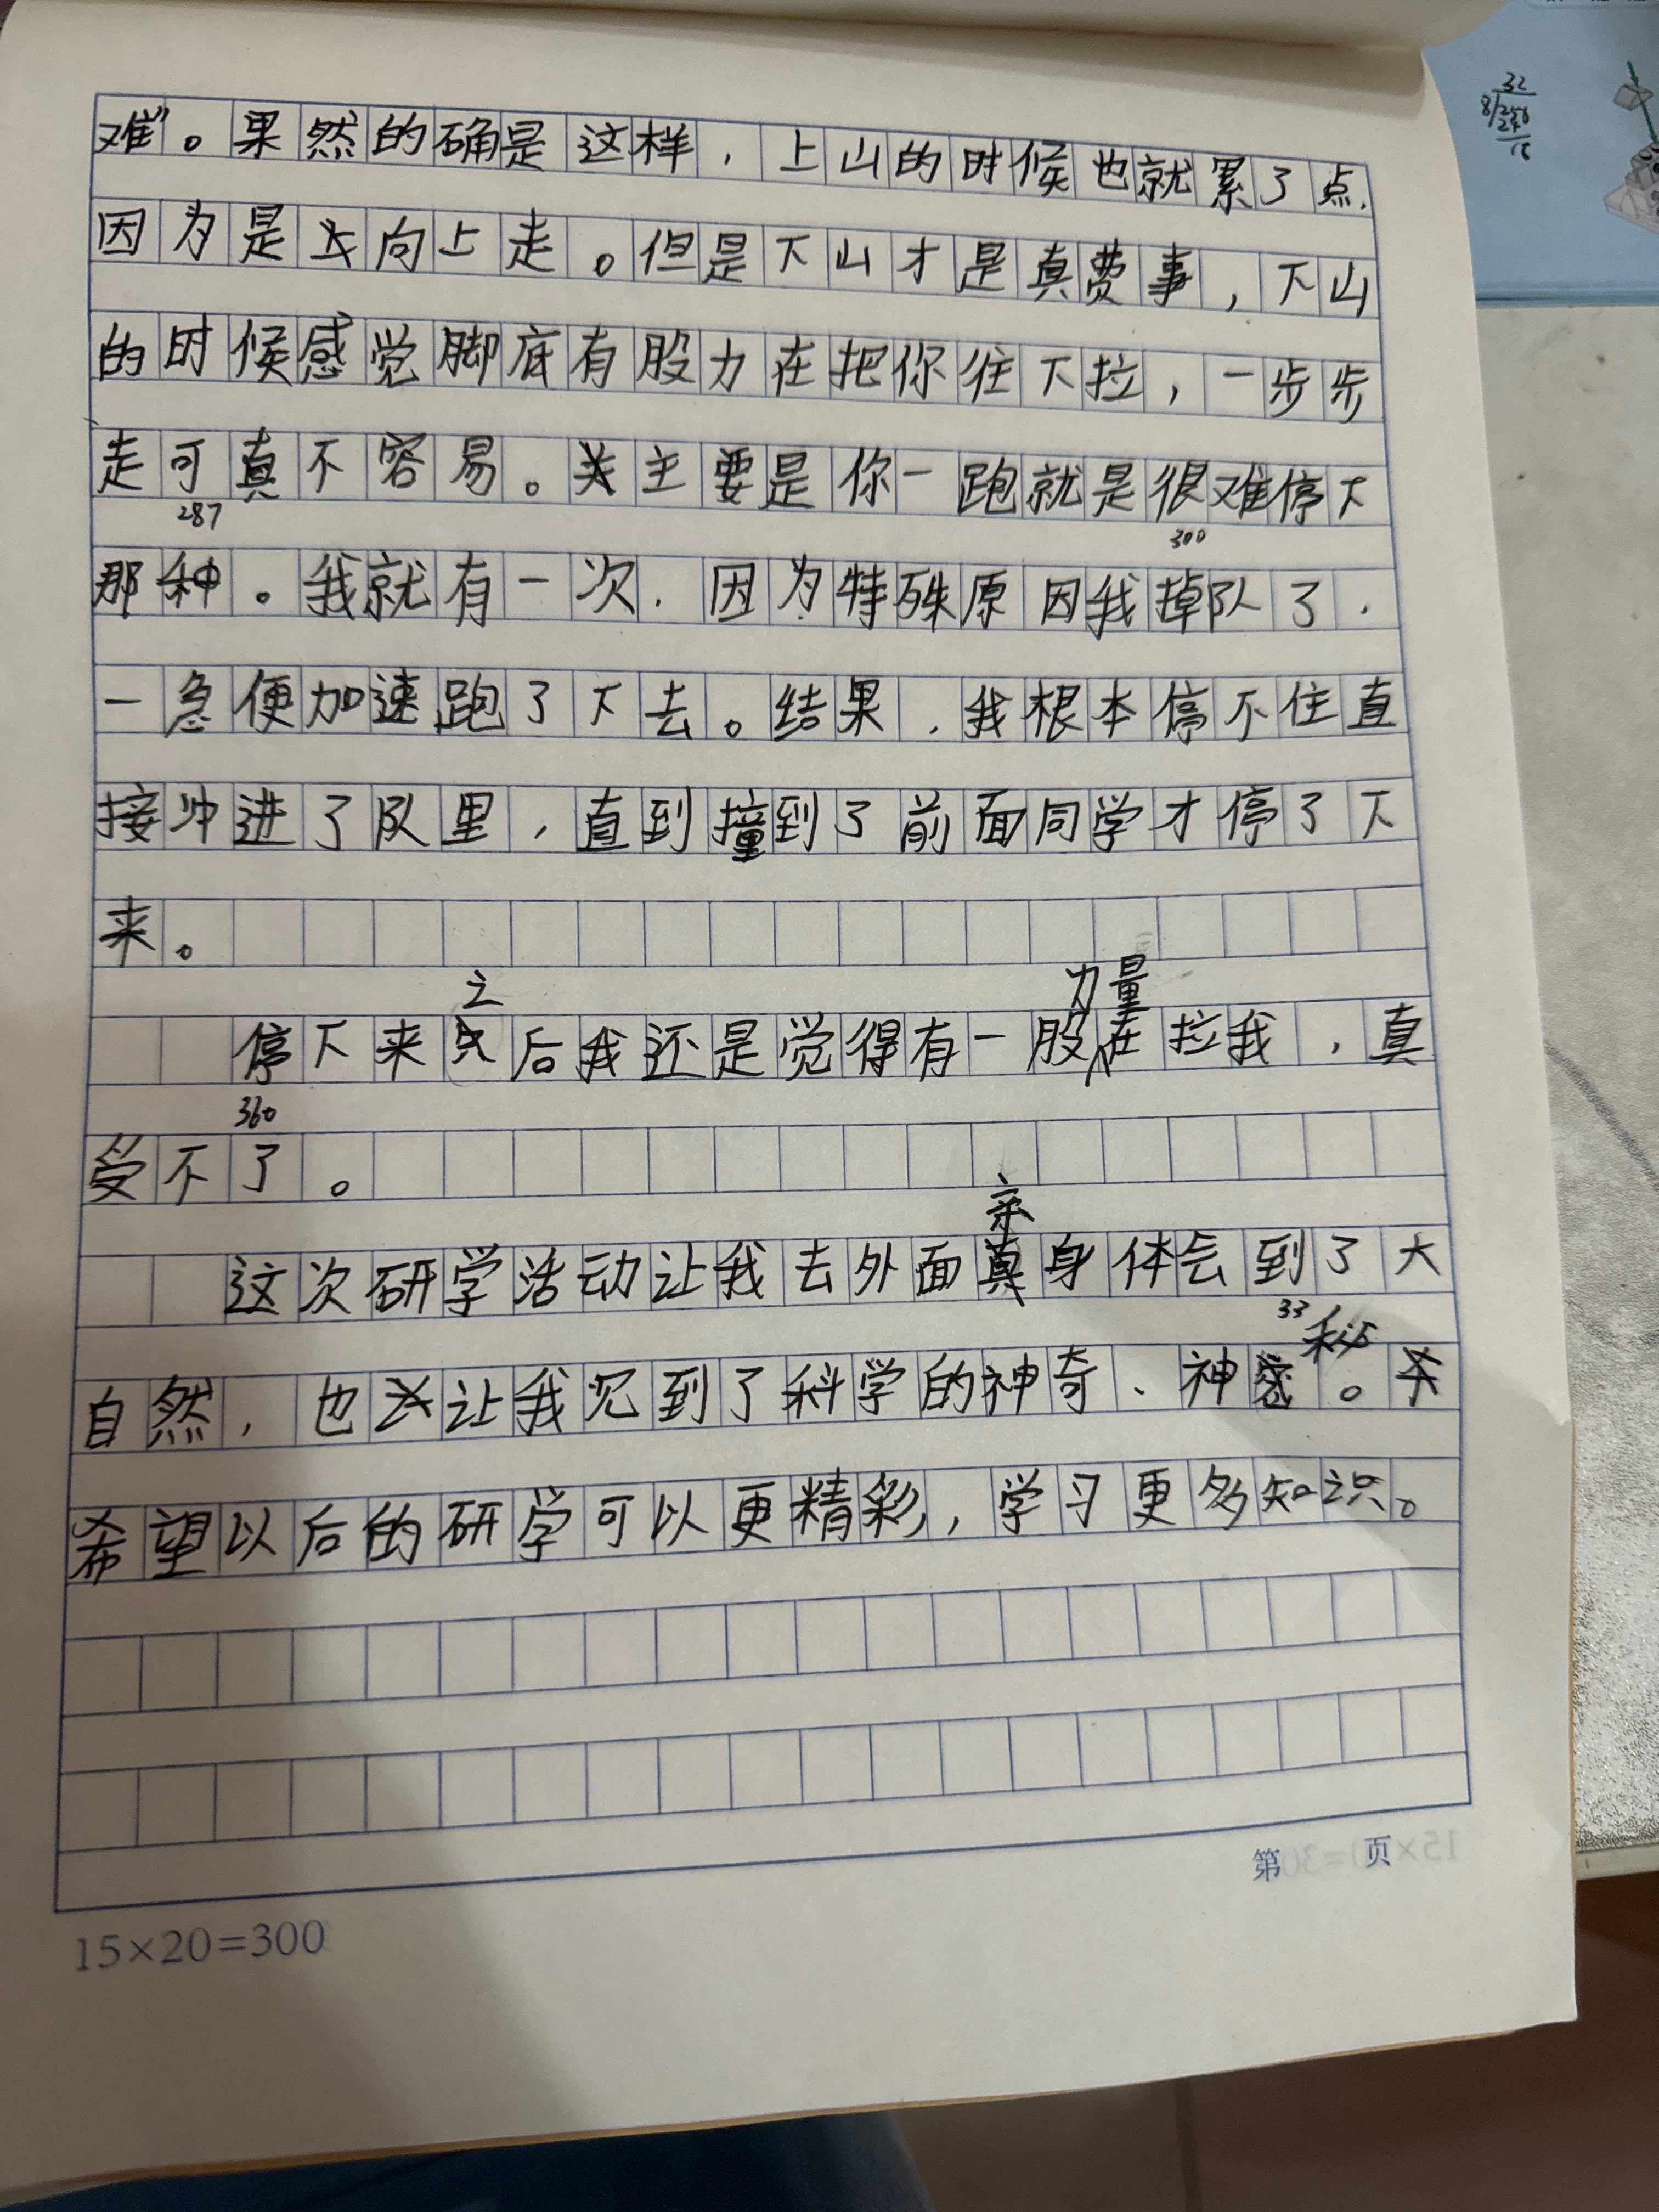 难”。果然的确是这样，上山的时候也就累了点，
因为是向上走。但是下山才是真费事，下山
的时候感觉脚底有股力在把你往下拉，一步步
走可真不容易。主要是你一跑就是很难停下
287
300
那种。我就有一次，因为特殊原因我掉队了，
一急便加速跑了下去。结果，我根本停不住直
接冲进了队里，直到撞到了前面同学才停了下
来。
停下来之后我还是觉得有一股力量在拉我，真
360
受不了。
这次研学活动让我去外面亲身体会到了大
33
自然，也让我见到了科学的神奇、神秘。
希望以后的研学可以更精彩，学习更多知识。
第 页
15×20=300
32
8/256
24
16